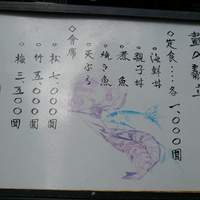 昼の献立
○定食……各一、〇〇〇圓
○海鮮丼
○親子丼
○煮魚
○焼き魚
○天ぷら
○会席
○松七〇〇〇圓
○竹五、〇〇〇圓
○梅三、五〇〇圓